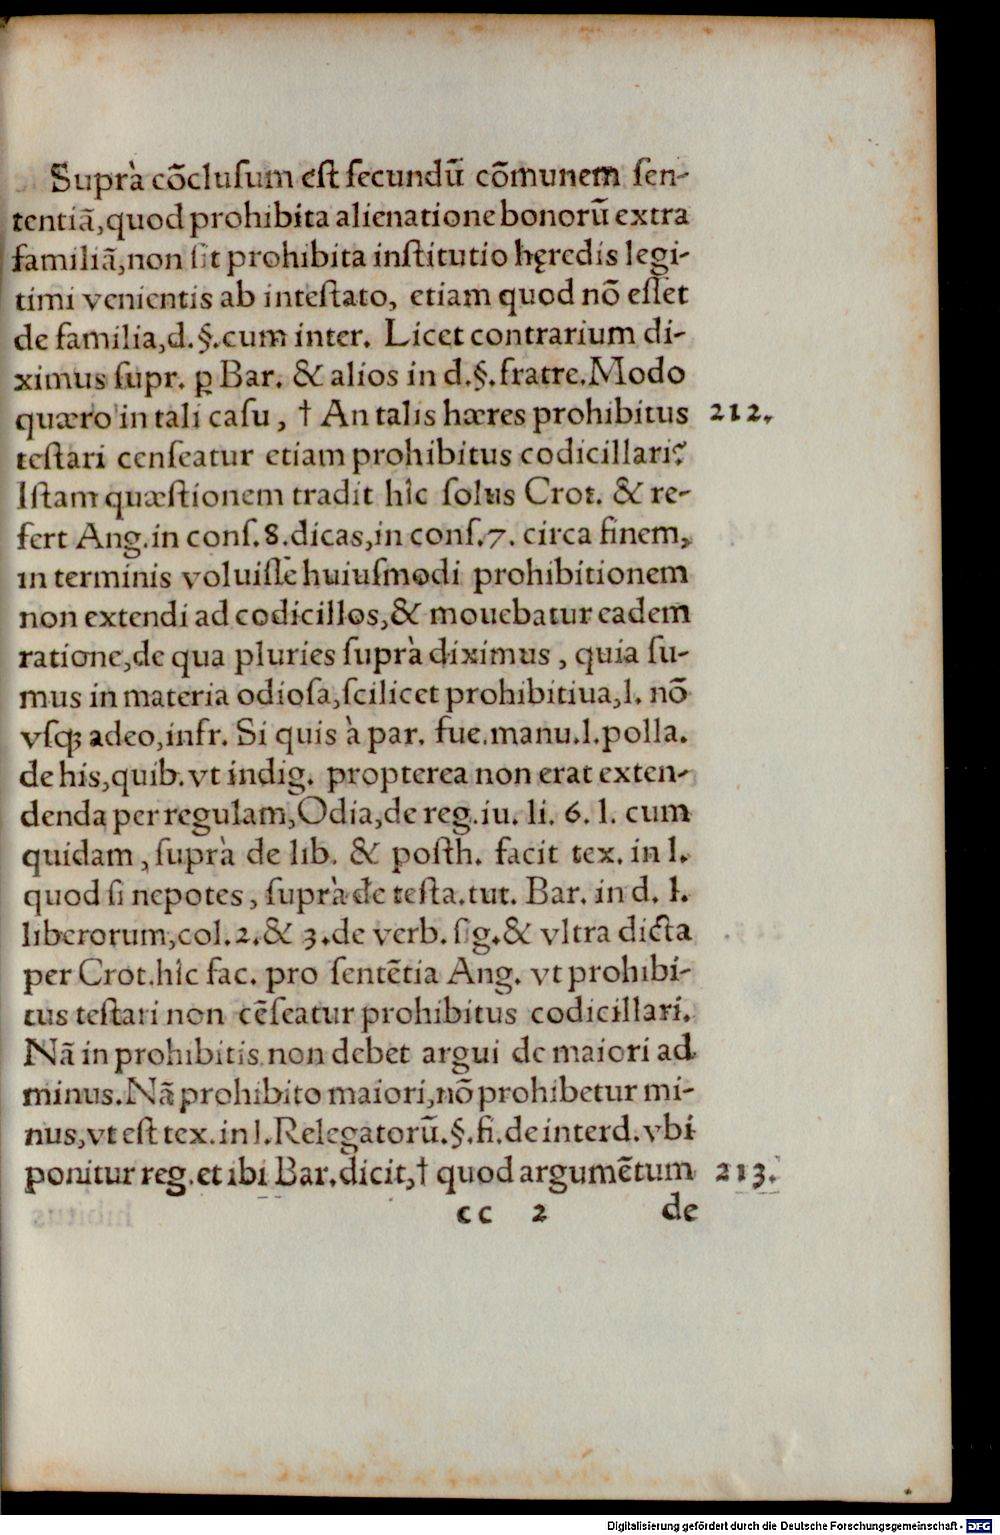 Suprà cōclusum est secundū cōmunem sen-
tentiā,quod prohibita alienatione bonorū extra
familiā,non sit prohibita institutio hęredis legi-
timi venientis ab intestato, etiam quod nō esset
de familia,d.§.cum inter. Licet contrarium di-
ximus supr. ꝑ Bar. & alios in d.§.fratre.Modo
quæro in tali casu, † An talis hæres prohibitus 212.
testari censeatur etiam prohibitus codicillari?
Istam quæstionem tradit hîc solus Crot. & re-
fert Ang.in cons.8.dicas,in cons.7. circa finem,
in terminis voluisse huiusmodi prohibitionem
non extendi ad codicillos,& mouebatur eadem
ratione,de qua pluries suprà diximus, quia su-
mus in materia odiosa,scilicet prohibitiua,l. nō
vsq; adeo,infr. Si quis à par. fue.manu.l.polla.
de his,quib.vt indig. propterea non erat exten-
denda per regulam,Odia,de reg.iu. li. 6. l. cum
quidam, suprà de lib. & posth. facit tex. in l.
quod si nepotes, suprà de testa.tut. Bar. in d. l.
liberorum,col.2.& 3.de verb. sig.& vltra dicta
per Crot.hîc fac. pro sentētia Ang. vt prohibi-
tus testari non cēseatur prohibitus codicillari.
Nā in prohibitis non debet argui de maiori ad
minus.Nā prohibito maiori,nō prohibetur mi-
nus,vt est tex.in l.Relegatorū.§.fi.de interd.vbi
ponitur reg.et ibi Bar.dicit,† quod argumētum 213.
cc 2 de
Digitalisierung gefördert durch die Deutsche Forschungsgemeinschaft - DFG